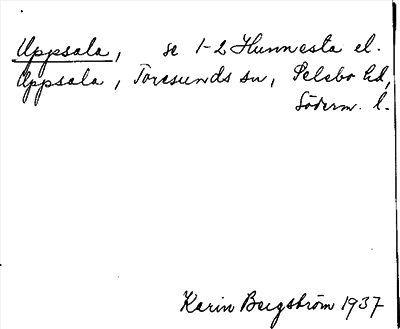 Uppsala, se 1-2 Hunnesta el.
Uppsala, Toresunds sn, Selebo hd,
Söderm. l.
Karin Bergström 1937